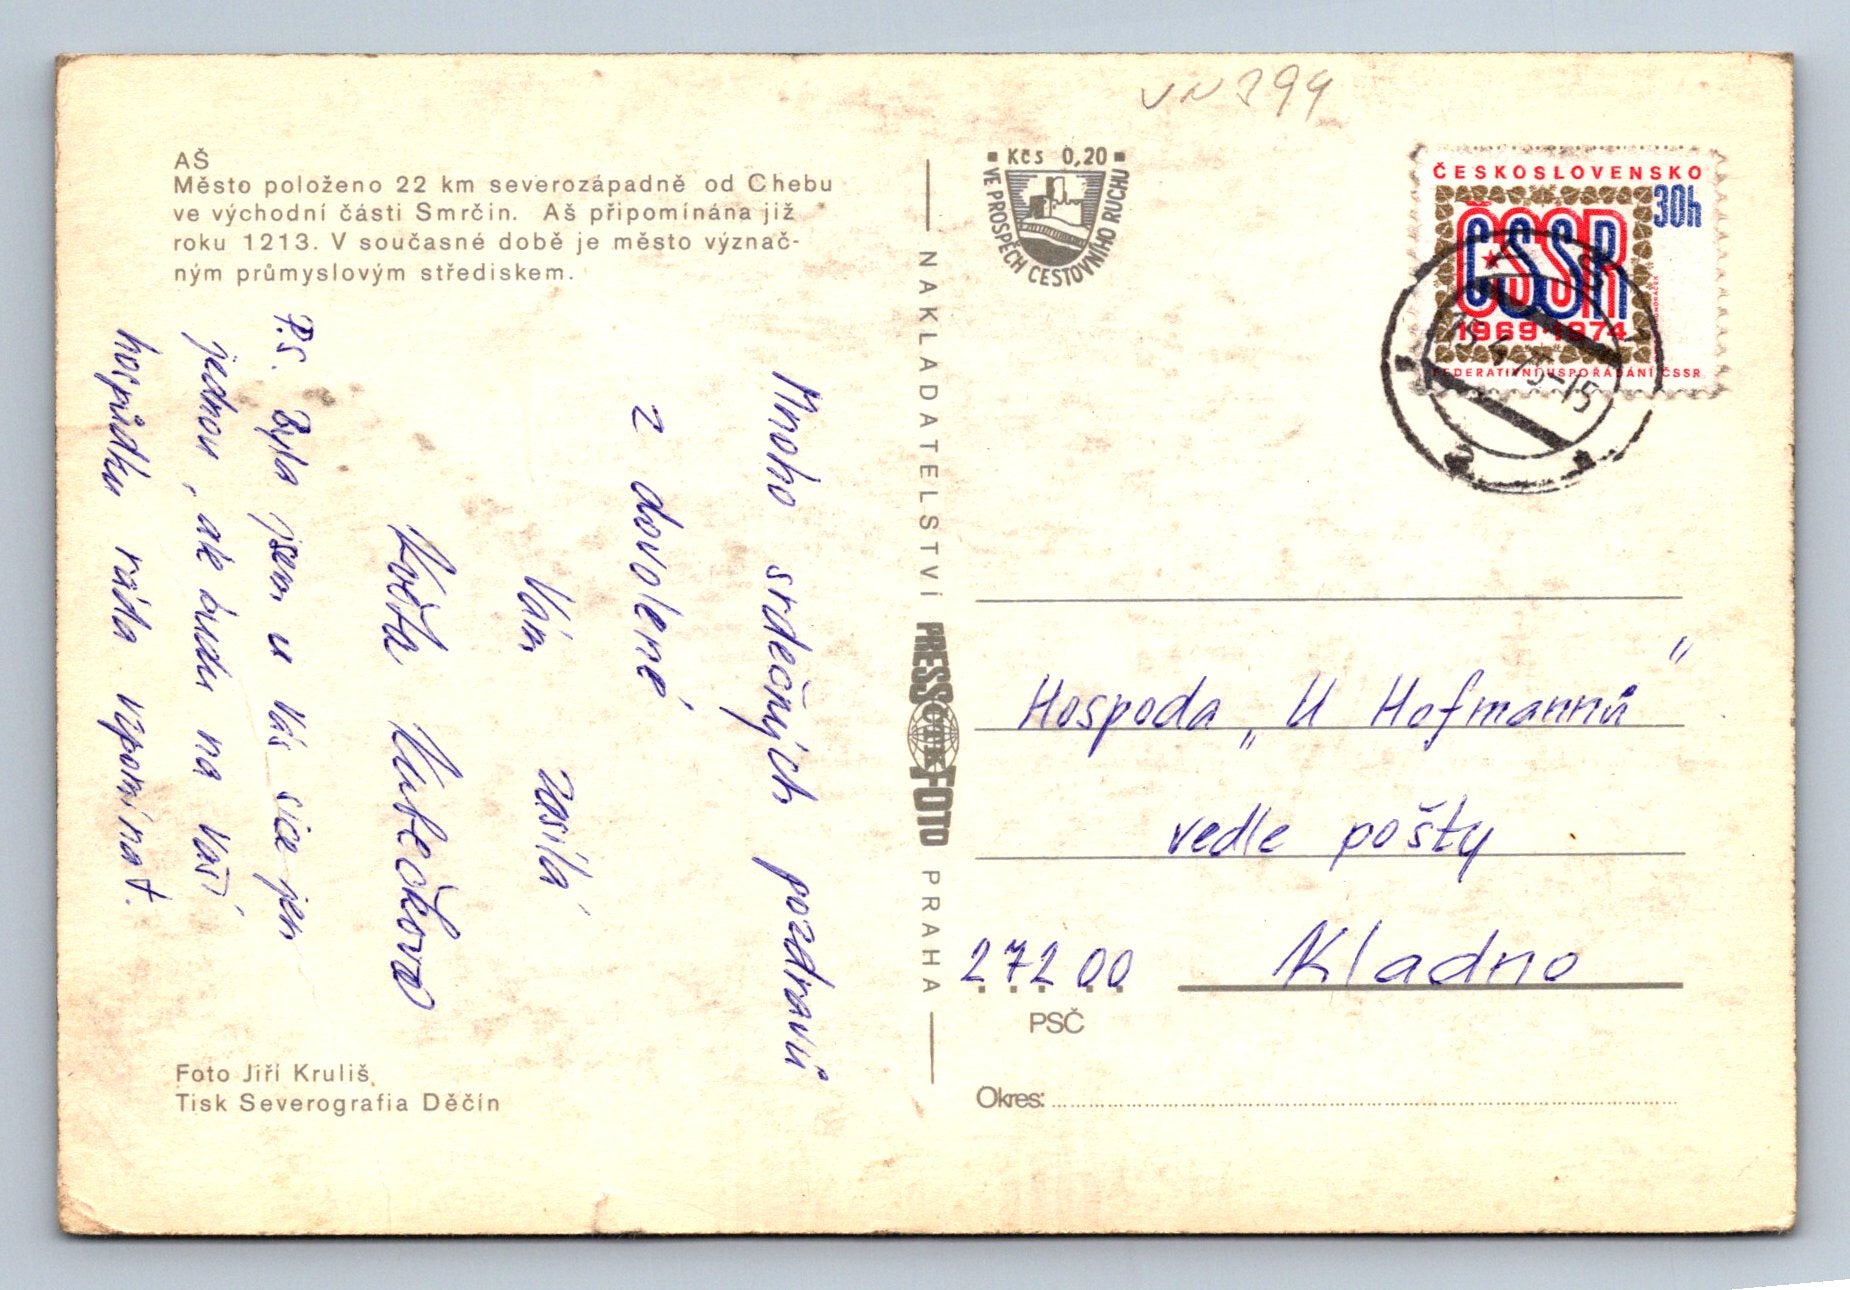 VN 399
AŠ
Město položeno 22 km severozápadně od Chebu
ve východní části Smrčin. Aš připomínána již
roku 1213. V současné době je město význač-
ným průmyslovým střediskem.
Mnoho srdečných pozdravů
z dovolené
Vám zasílá
Květa Kubečková
P.S. Byla jsem u Vás sice jen
jednou, ale budu na Vaší
hospůdku ráda vzpomínat.
Foto Jiří Kruliš
Tisk Severografia Děčín
NAKLADATELSTVÍ PRESSFOTO PRAHA
ČTK
Kčs 0,20
VE PROSPĚCH CESTOVNÍHO RUCHU
ČESKOSLOVENSKO
30h
ČSSR
1969-1974
FEDERATIVNÍ USPOŘÁDÁNÍ ČSSR
Hospoda „U Hofmannů"
vedle pošty
27200 Kladno
PSČ
Okres: